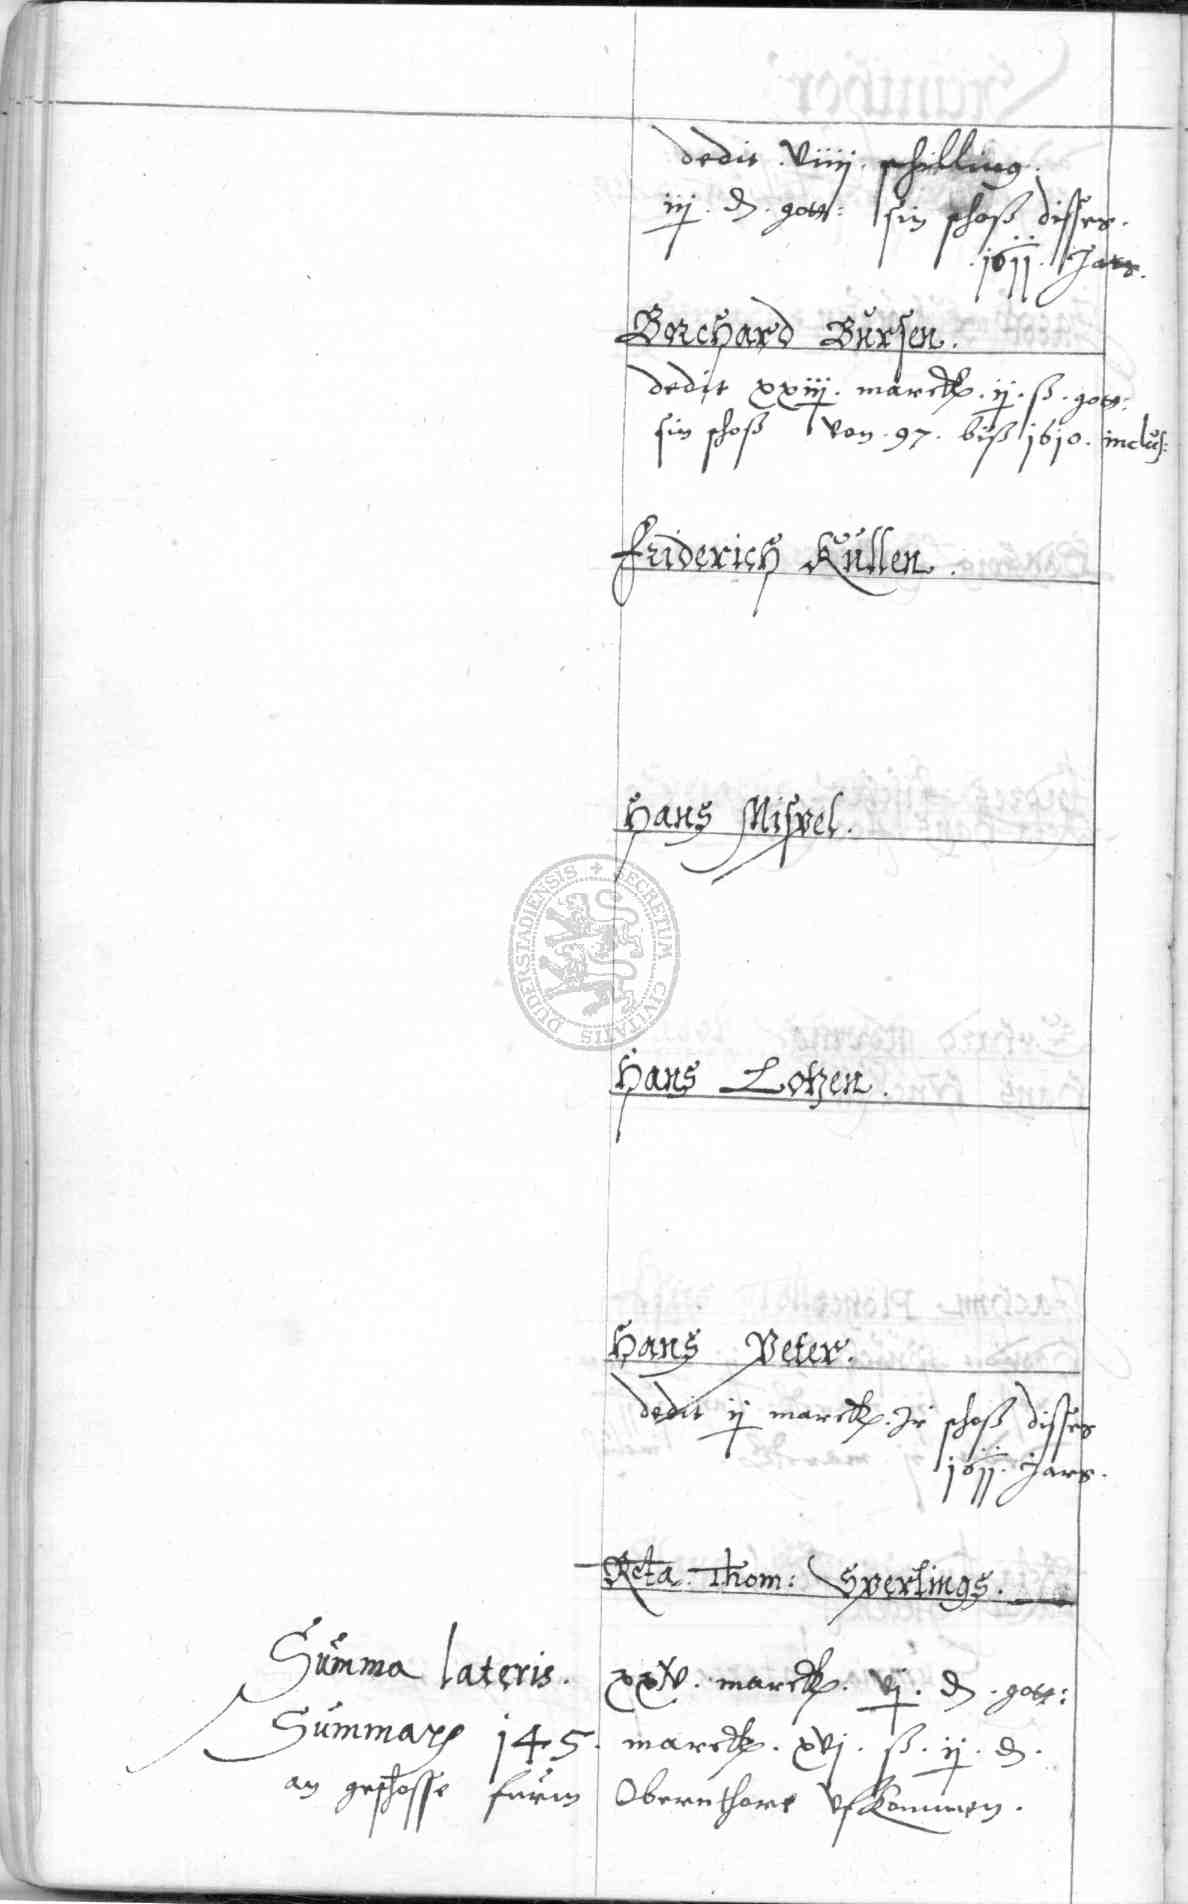 dedit . viiij . schilling .
iij . d . gott: sin schoß disses .
. 1611 . Jars .
Borchard Bürsen .
dedit xxiij . marck . ij . ß . gott:
sin schoß von . 97 . biß 1610 . inclus:
Friderich Küllen .
Hans Mispel .
SECRETUM CIVITATIS DUDERSTADIENSIS
Hans Lotzen .
Hans Peter .
dedit ij marck . Ir schoß disses
1611 . Jars .
Rcta . Thom: Sperlings .
Summa lateris . xxv . marck . vj . d . gott:
Summarum 145 . marck . xvj . ß . ij . d .
an geschosse fürm Obernthore vfkommen .